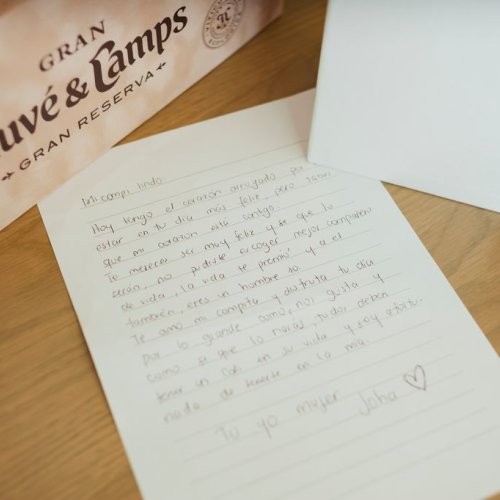 GRAN
uvé & Camps
GRAN RESERVA
Mi compi lindo
Hoy tengo el corazón arrugado por
estar en tu día más feliz, pero
que mi corazón está contigo
Te mereces ser muy feliz y se que lo
serán, no pudiste escoger mejor compañero
de vida, la vida te premió y a el
también, eres un hombre 10.
Te amo mi compita y disfruta tu día
por lo grande como nos gusta y
como se que lo harás, todos deben
tener un en su vida y soy afortu-
nada de tenerte en la mía.
Tu yo mujer Joha